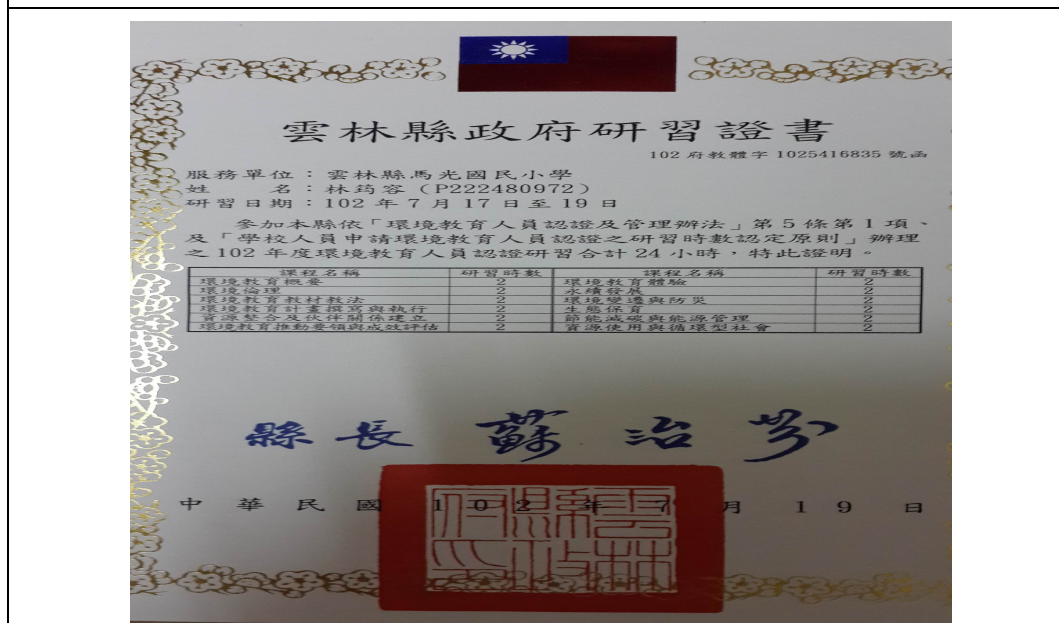 雲林縣政府研習證書
102 府教體字 1025416835 號函
服務單位：雲林縣馬光國民小學
姓　　名：林筠容（P222480972）
研習日期：102 年 7 月 17 日至 19 日
參加本縣依「環境教育人員認證及管理辦法」第 5 條第 1 項、
及「學校人員申請環境教育人員認證之研習時數認定原則」辦理
之 102 年度環境教育人員認證研習合計 24 小時，特此證明。
課程名稱 研習時數 課程名稱 研習時數
環境教育概要 2 環境教育體驗 2
環境倫理 2 永續發展 2
環境教育教材教法 2 環境變遷與防災 2
環境教育計畫撰寫與執行 2 生態保育 2
資源整合及伙伴關係建立 2 節能減碳與能源管理 2
環境教育推動要領與成效評估 2 資源使用與循環型社會 2
縣長 蘇治芬
中華民國 102 年 7 月 19 日
雲林縣政府印